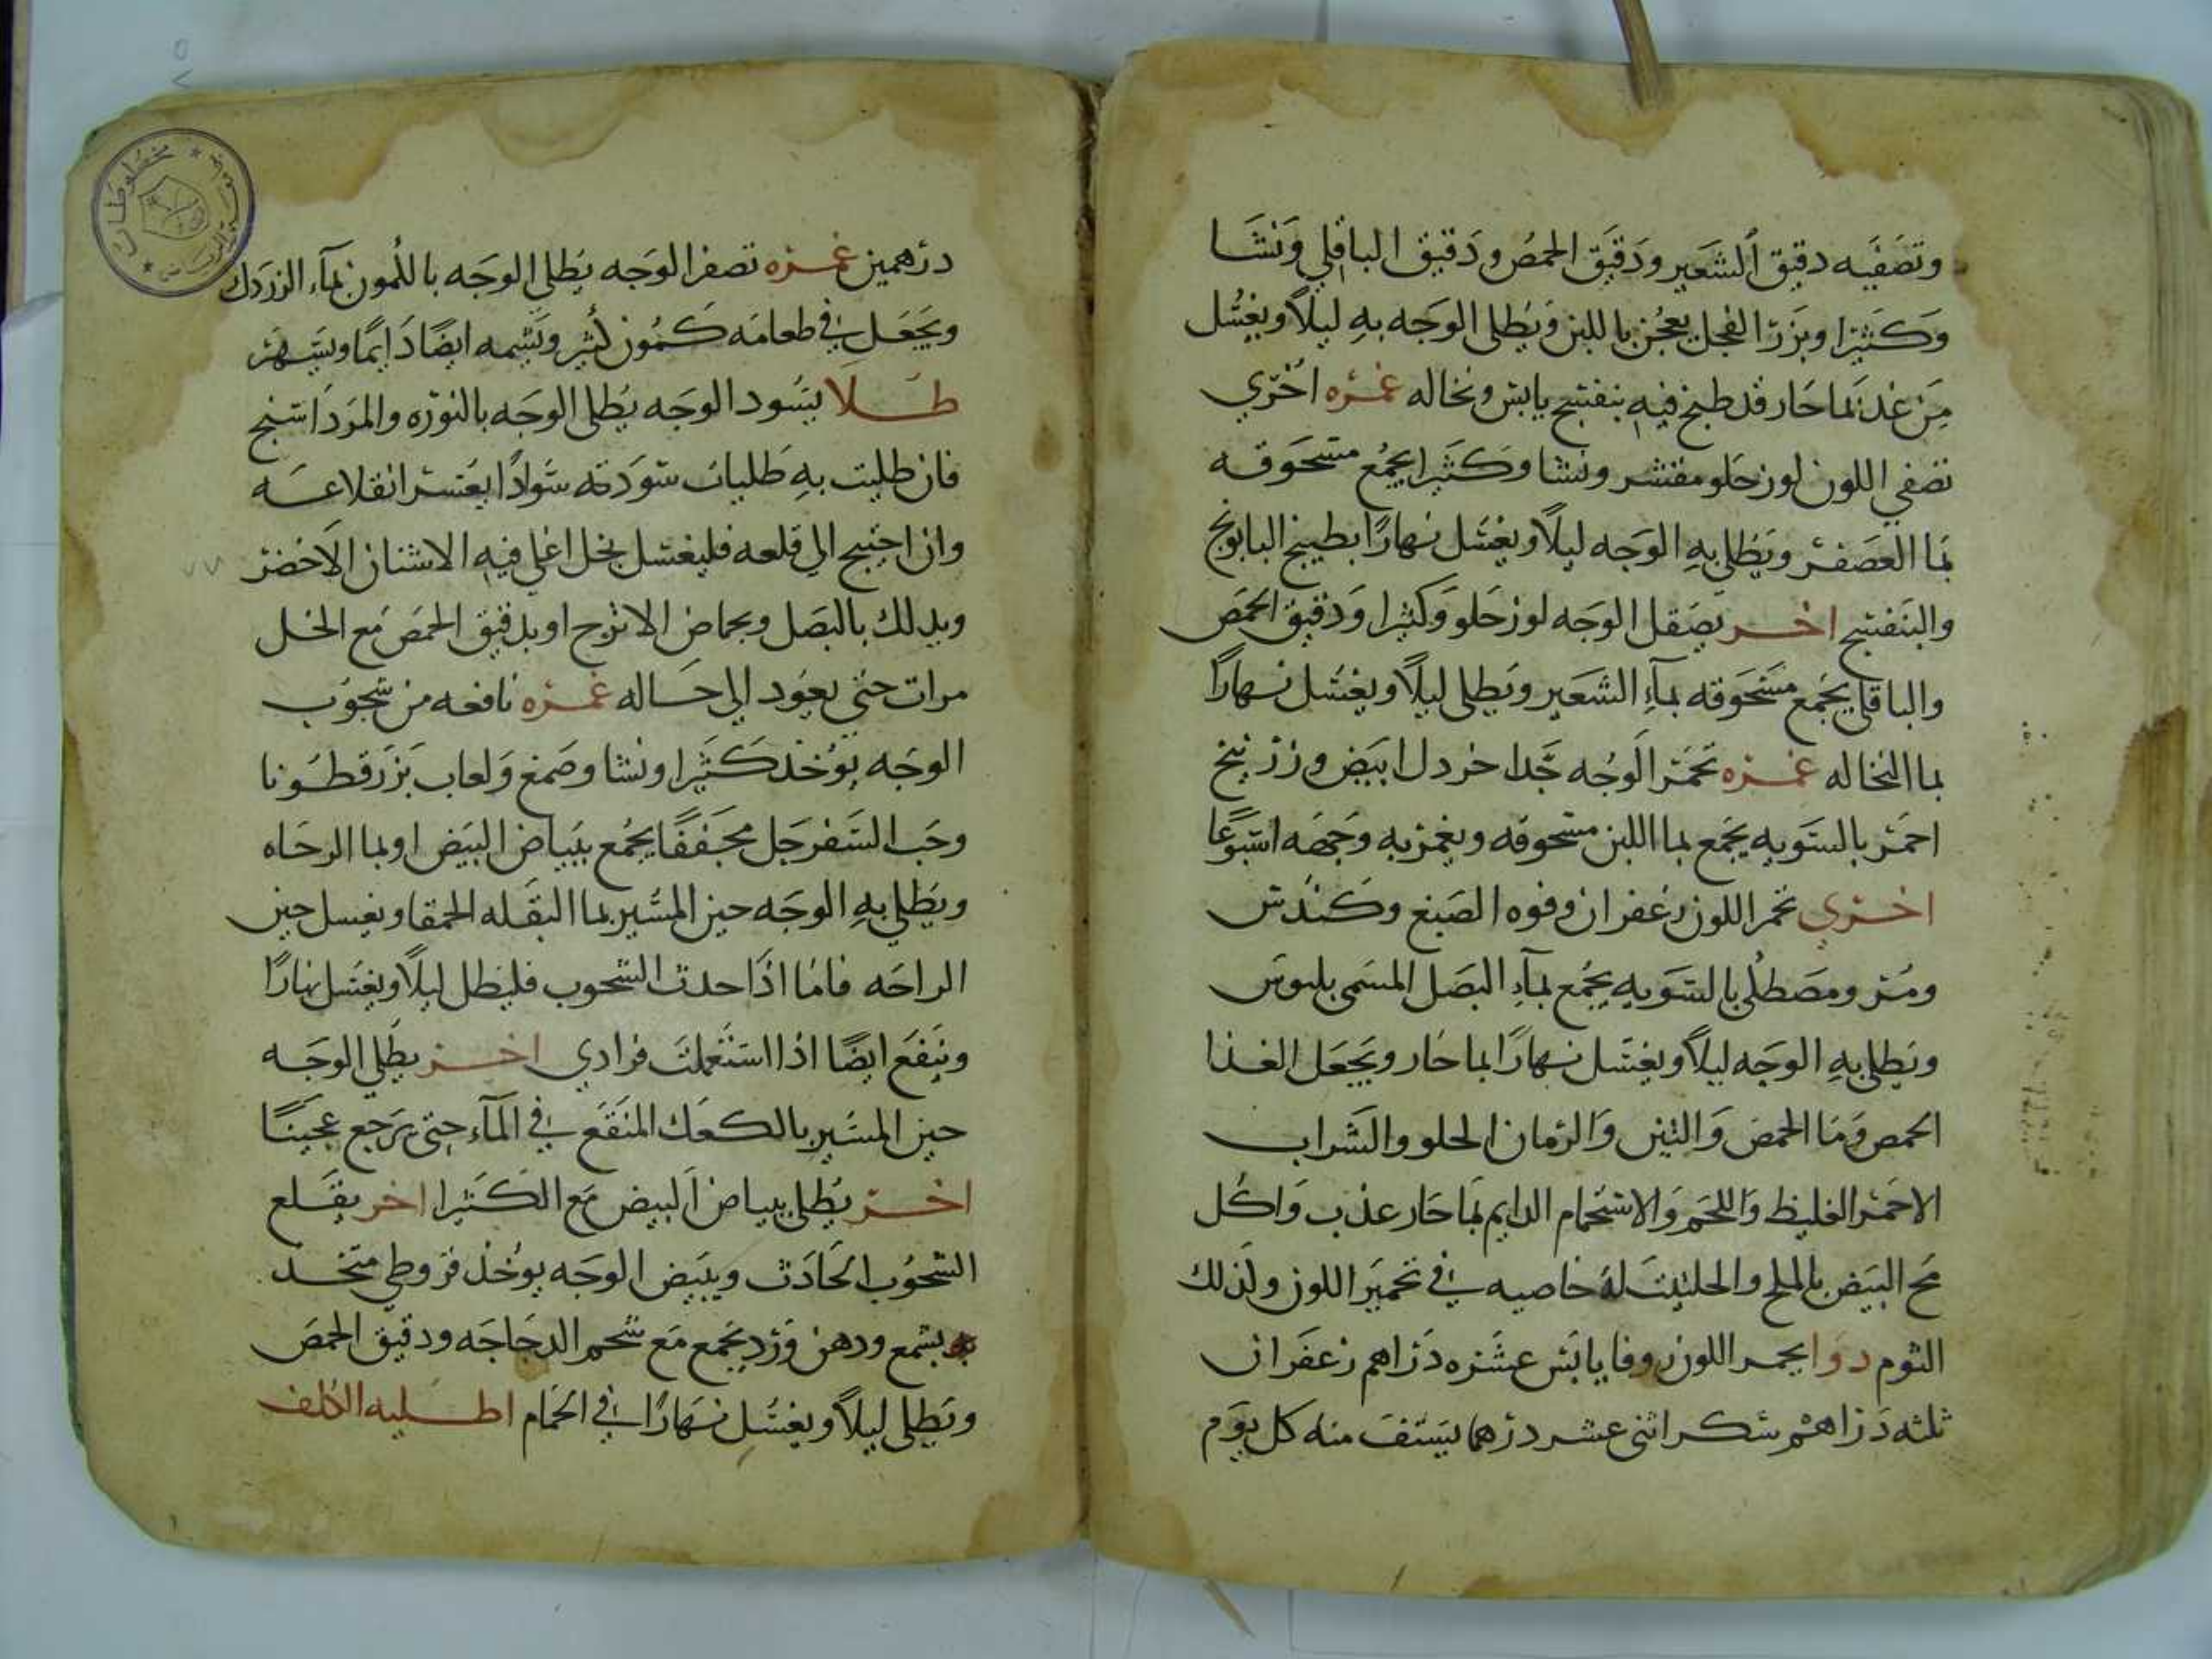 وتصفيه دقيق الشعير ودقيق الحمص ودقيق الباقلي ونشا
وكثيرا وبزر الفجل يعجن باللبن ويطلى الوجه به ليلاً ويغسل
من غد بما حار قد طبخ فيه بنفسج يابس ونخاله غمره اخرى
تصفي اللون لوز حلو مقشر ونشا وكثيرا يجمع مسحوقه
بما العصفر ويطلى به الوجه ليلاً ويغسل نهارًا بطبيخ البابونج
والبنفسج اخر يصقل الوجه لوز حلو وكثيرا ودقيق الحمص
والباقلي يجمع مسحوقه بمآء الشعير ويطلى ليلاً ويغسل نهارًا
بما النخاله غمره تحمر الوجه جدا خردل ابيض وزرنيخ
احمر بالسويه يجمع بما اللبن مسحوقه ويغمر به وجهه اسبوعًا
اخرى تحمر اللون زعفران وفوه الصبغ وكندس
ومر ومصطكى بالسويه يجمع بمآء البصل المسمى بلبوس
ويطلى به الوجه ليلاً ويغسل نهارًا بما حار ويجعل الغذا
الحمص وما الحمص والتين والرمان الحلو والشراب
الاحمر الغليظ واللحم والاستحمام الدايم بما حار عذب واكل
مح البيض بالملح والحلتيت له خاصيه في تحمير اللون ولذلك
الثوم دوا يحمر اللون زوفا يابس عشره دراهم زعفران
ثلثه دراهم سكر اثنى عشر درهما يستف منه كل يوم
درهمين غمره تصفر الوجه يطلى الوجه بالكمون بمآء الزردك
ويجعل في طعامه كمون كثير ويشمه ايضًا دايمًا ويسهر
طلا يسود الوجه يطلى الوجه بالنوره والمرداسنج
فان طليت به طليات سودته سوادًا يعسر انقلاعه
وان احتيج الى قلعه فليغسل بخل اغلي فيه الاشنان الاخضر
وبدلك بالبصل وبحماض الاترج او بدقيق الحمص مع الخل
مرات حتى يعود الى حاله غمره نافعه من شحوب
الوجه يوخذ كثيرا ونشا وصمغ ولعاب بزرقطونا
وحب السفرجل مجففًا يجمع ببياض البيض او بما الرحاه
ويطلى به الوجه حين المسير بما البقله الحمقا ويغسل حين
الراحه فاما اذا حدث الشحوب فليطل ليلاً ويغسل نهارًا
وينفع ايضًا اذا استعملت فرادي اخر يطلى الوجه
حين المسير بالكعك المنقع في المآء حتى يرجع عجينًا
اخر يطلى ببياض البيض مع الكثيرا اخر يقلع
الشحوب الحادث ويبيض الوجه يوخذ قروطي متخذ
بشمع ودهن ورد يجمع مع شحم الدجاجه ودقيق الحمص
ويطلى ليلاً ويغسل نهارًا في الحمام اطليه الكلف
مخطوطات